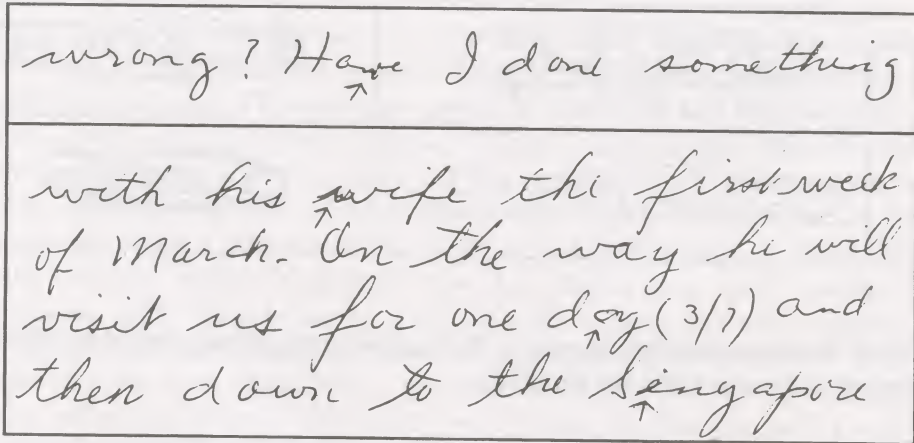 wrong? Have I done something
with his wife the first week
of March. On the way he will
visit us for one day (3/7) and
then down to the Singapore